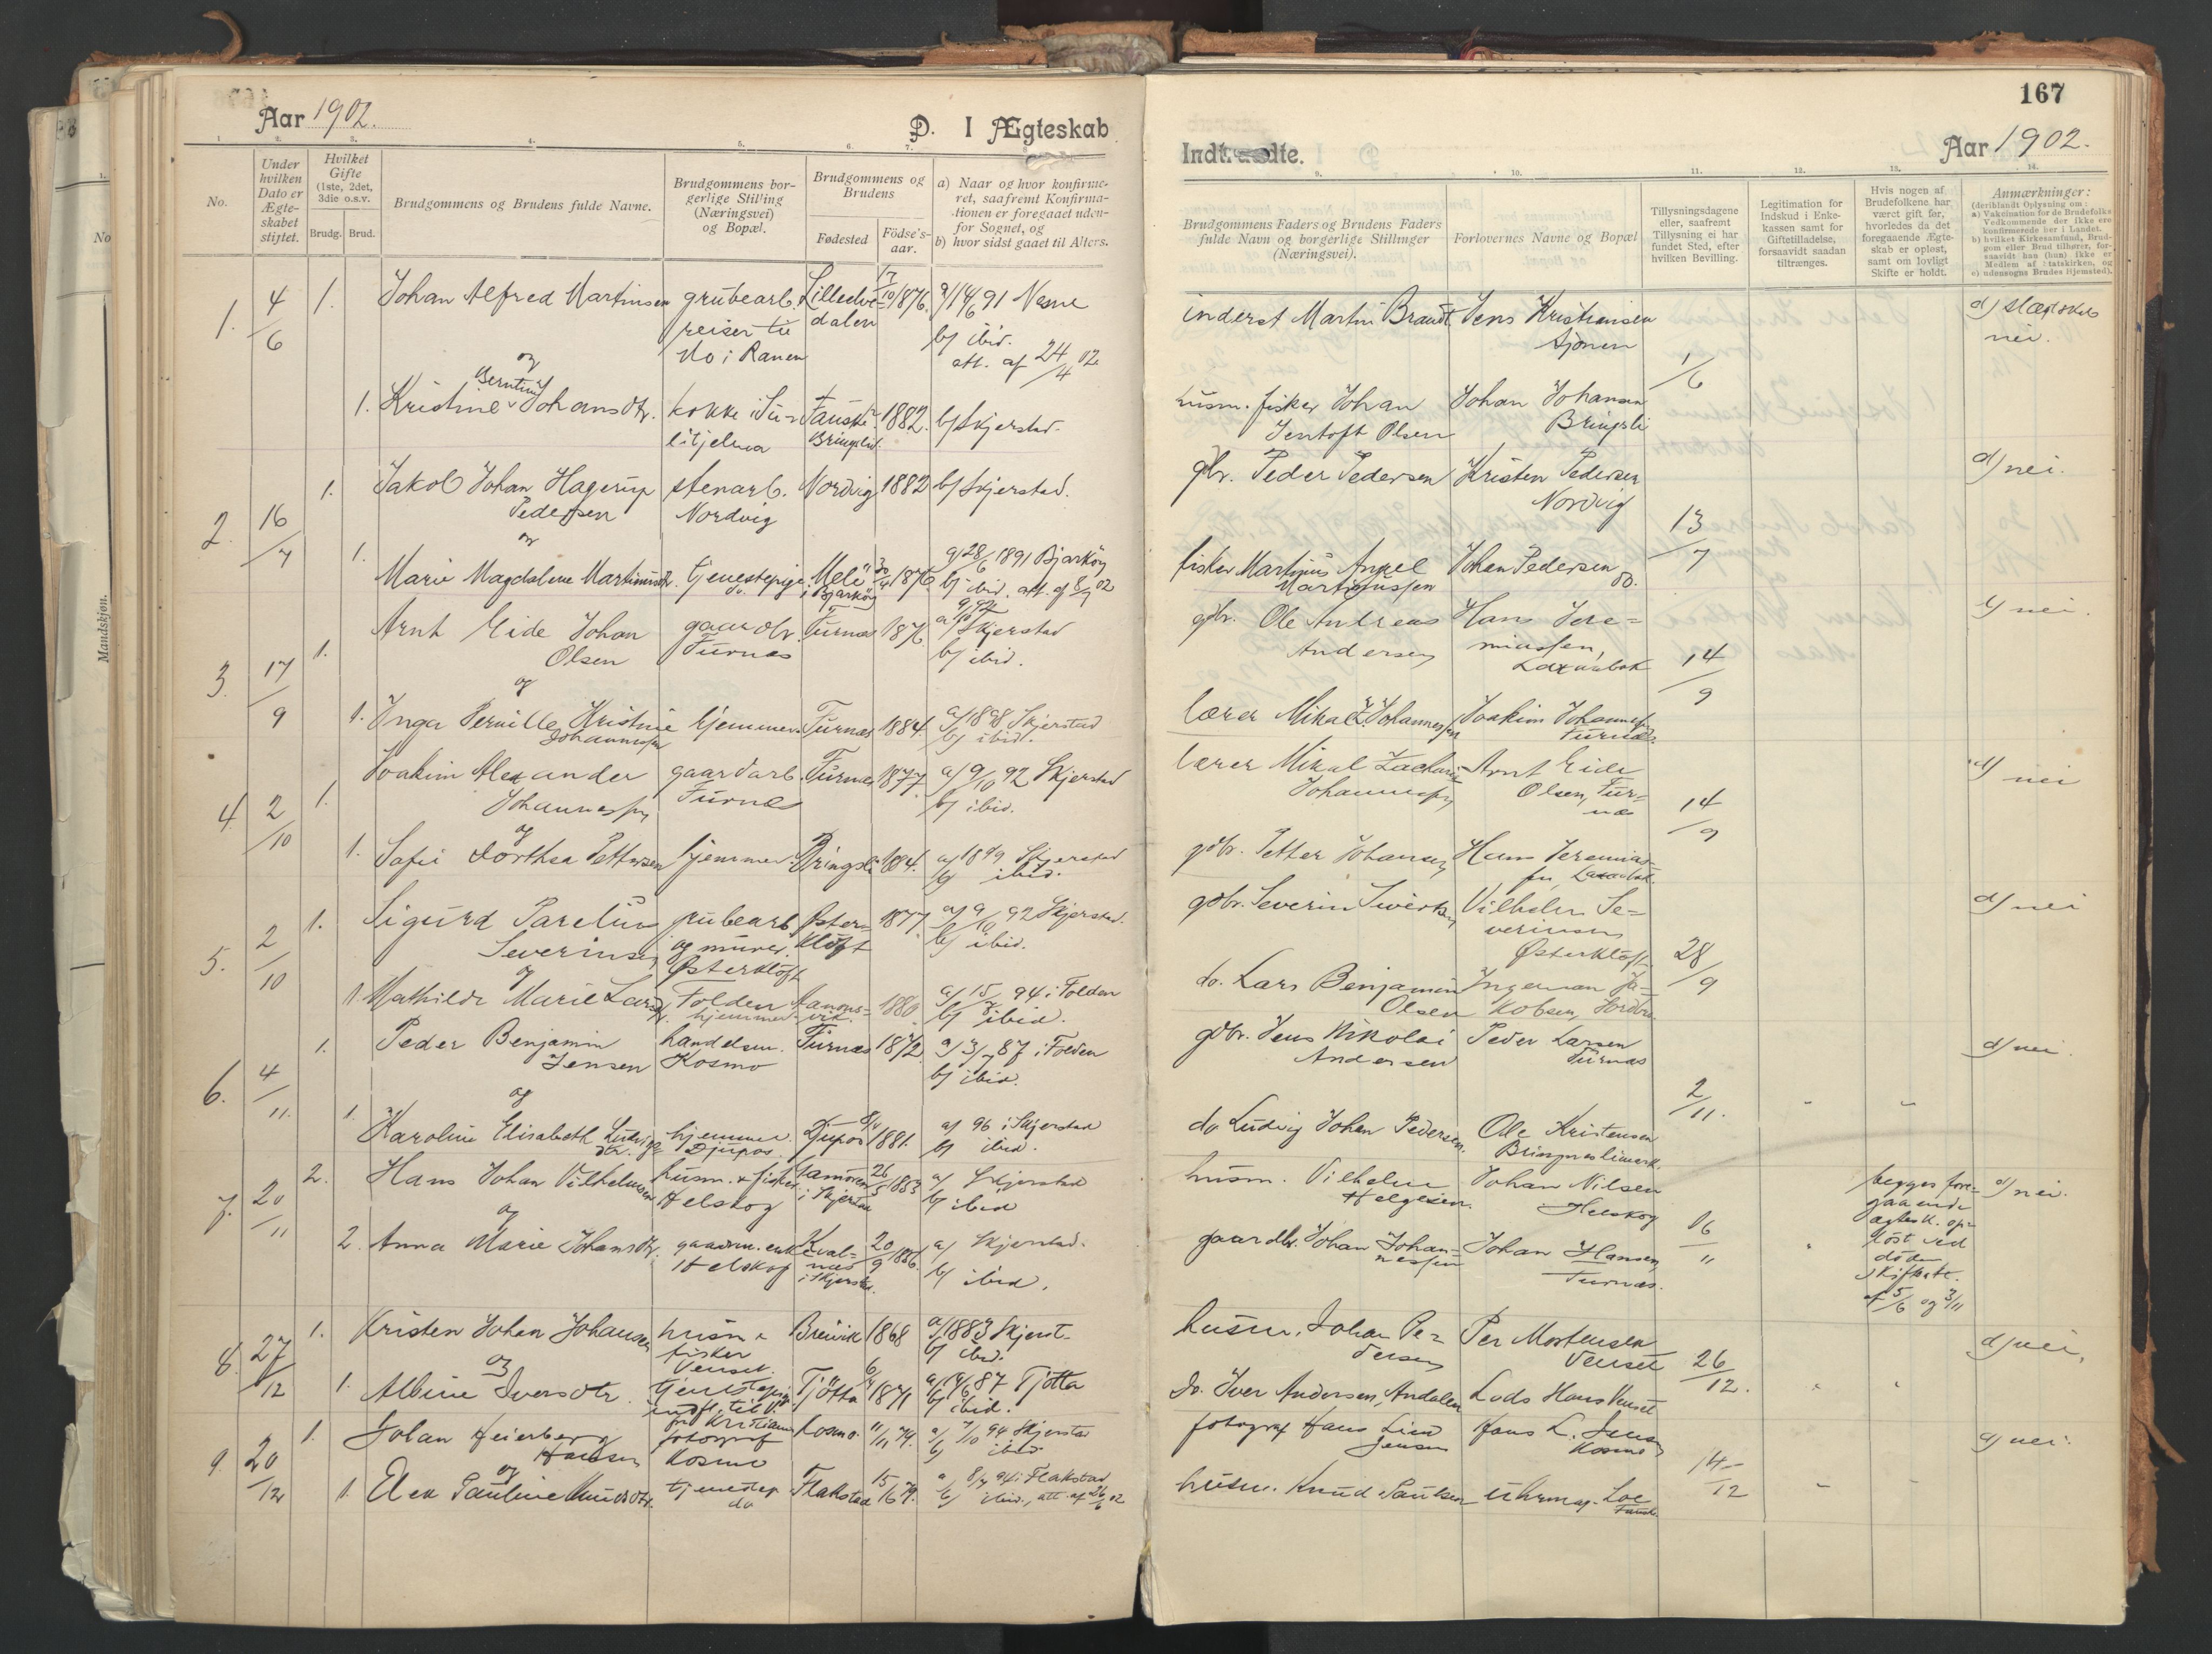 Aar 1902.
D. I Ægteskab
No.
Under hvilken Dato er Ægteskabet stiftet.
Hvilket Gifte (1ste, 2det, 3die o.s.v.
Brudg. Brud.
Brudgommens og Brudens fulde Navne.
Brudgommens borgerlige Stilling (Næringsvei) og Bopæl.
Brudgommens og Brudens
Fødested
Födsels-aar.
a) Naar og hvor konfirmeret, saafremt Konfirmationen er foregaaet udenfor Sognet, og
b) hvor sidst gaaet til Alters.
1. 4/6 1. Johan Alfred Martinsen grubearb. 17/10 1876. a/ 14/6 91 Nesne
reiser til dalen b/ ibid.
do i Ranen att. af 24/4 02
og
Berntine
1. Kristine Johansdtr. kokke i Su- Fauske 1882. b/ Skjerstad.
litjelma Bringsli
1. Jakob Johan Hagerup stenarb. Nordvig 1882 b/ Skjerstad.
2. 16/7 Pedersen Nordvig
og
1. Marie Magdalene Martinusdtr. tjenestepige Mele 30/4 1876. a/ 28/6 1891 Bjarköy
do. i Bjarköy b/ ibid. att. af 8/7 02
Arnt Eide Johan gaardbr. Furnæs 1876. a/ Skjerstad
3. 17/9 1. Olsen Furnæs b/ ibid.
og
1. Inga Pernille Kristine hjemmev. Furnæs 1884. a/ 1898 Skjerstad
Johannessen b/ ibid.
Joakim Alexander gaardarb. Furnæs 1877. a/ 9/10 92 Skjerstad
4. 2/10 1. Johannessen Furnæs b/ ibid.
og
1. Sofie Dorthea Pettersen hjemmev. Bringsli 1884. a/ 1899 Skjerstad
b/ ibid.
1. Sigurd Parelius grubearb. Øster- 1877. a/ 9/10 92 Skjerstad.
5. 2/10 Severinsen og murer. klöft b/ ibid.
og Østerklöft
1. Mathilde Marie Larsdtr. Folden 1880 a/ 15/7 94 i Folden
hjemmev. b/ ibid.
1. Peder Benjamin handelsm. Furnæs 1872. a/ 3/7 87 i Folden
6. 4/11. Jensen Kosmo b/ ibid.
og
1. Karoline Elisabeth Ludvigsdtr. hjemmev. Djupos 8/4 1881. a/ 96 i Skjerstad
Djupos. b/ ibid.
2. Hans Johan Vilhelmsen husm. & fisker 26/5 1853 a/ Skjerstad
7. 20/11 Helskog i Skjerstad b/ ibid
og
2. Anna Marie Johansdtr. gaardm. enke Kval- 20/9 1856. a/ Skjerstad.
Helskog næs b/ ibid.
i Skjerstad.
1. Kristen Johan Johansen husm & Breivik 1868 a/ 1883 Skjerst.
8. 27/12 fisker b/ ibid.
og Venset.
1. Albine Iversdtr. tjenestepige Tjötta 6/4 1871 a/ 19/6 87 Tjotta
indfl. til V. b/ ibid.
1. Johan Heierberg fotograf Kosmo 11/11 74. a/ 7/10 94 Skjerstad
9. 20/12 Hansen Kosmo b/ ibid.
og
1. Elen Pauline Knudsdtr. tjenestep. Flakstad 15/6 79. a/ 8/7 94 i Flakstad
do b/ ibid., att. af 26/6 02
167
Indtraadte.
Aar 1902.
Brudgommens Faders og Brudens Faders fulde Navn og borgerlige Stillinger (Næringsvei).
Forlovernes Navne og Bopæl
Tillysningsdagene eller, saafremt Tillysning ei har fundet Sted, efter hvilken Bevilling.
Legitimation for Indskud i Enkekassen samt for Giftetilladelse, forsaavidt saadan tiltrænges.
Hvis nogen af Brudefolkene har været gift før, hvorledes da det foregaaende Ægteskab er opløst, samt om lovligt Skifte er holdt.
Anmærkninger:
(deriblandt Oplysning om:
a) Vakcination for de Brudefolks Vedkommende der ikke ere konfirmerede her i Landet.
b) hvilket Kirkesamfund, Brudgom eller Brud tilhører, forsaavidt han (hun) ikke er Medlem af Statskirken, og
c) udensogns Brudes Hjemsted).
inderst Martin Brandt Jens Kristiansen d/ slægtskab
Sjonen nei.
1/6
husm. fisker Johan Johan Johansen
Jentoft Olsen Bringsli
gbr. Peder Pedersen Kristen Pedersen d/ nei.
Nordvig
13/7
fisker Martinus Angel Johan Pedersen
Martinussen do.
gbr. Ole Andreas Hans Jere- d/ nei.
Andersen miassen,
14/9
lærer Mikal Z. Johannessen Joakim Johannessen
Furnæs.
lærer Mikal Zacharia Arnt Eide d/ nei
Johannessen Olsen, Fur-
næs 14/9
gdbr. Petter Johansen Hans Jeremias-
sen
gdbr. Severin Sivertsen Vilhelm Se- d/ nei
verinsen
Østerklöft 28/9
do. Lars Benjamin Ingeman Ja-
Olsen kobsen,
gdbr. Jens Nikolai Peder Larsen d/ nei.
Andersen Furnæs
2/11.
do Ludvig Johan Pedersen. Ole Kristensen
Bringslimark.
husm. Vilhelm Johan Nilsen begges fore- d/ nei.
Helgesen. Helskog gaaende
16/11 ægtesk. op-
gaardbr. Johan Johan- Johan Hansen, löst ved
nessen Furnæs. döden
skifteatt.
af 5/6 og 3/11
husm. Johan Pe- Per Mortensen d/ nei.
dersen Venset 26/12.
do. Iver Andersen, Andalen Lods Hans Venset
fotograf Hans Lind Hans L. Jensen d/ nei.
Jensen Kosmo
14/12
husm. Knud Paulsen uhrmag. Loe
Fauske.